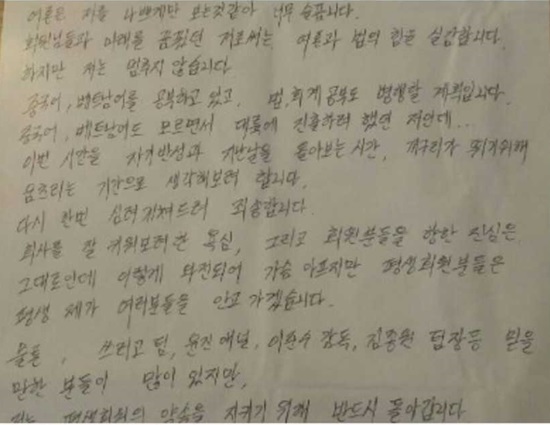 여론은 저를 나쁘게만 보는것같아 너무 슬픕니다.
회원님들과 미래를 꿈꿨던 저로써는 여론과 법의 힘을 실감합니다.
하지만 저는 멈추지 않습니다
중국어, 베트남어를 공부하고 있고, 법, 회계 공부도 병행할 계획입니다.
중국어, 베트남어도 모르면서 대륙에 진출하려 했던 저인데...
이번 시간을 자기반성과 지난날을 돌아보는 시간, 개구리가 뛰기위해
움츠리는 기간으로 생각해보려 합니다.
다시 한번 심려끼쳐드려 죄송합니다.
회사를 잘 키워보려한 욕심, 그리고 회원분들을 향한 진심은
그대로인데 이렇게 와전되어 가슴 아프지만 평생회원분들은
평생 제가 여러분들을 안고 가겠습니다.
물론, 쓰리고 팀, 윤진 애널, 이 감독, 김종원 팀장등 믿을
만한 분들이 많이 있지만,
저는 평생회원의 약속을 지키기 위해 반드시 돌아갑니다